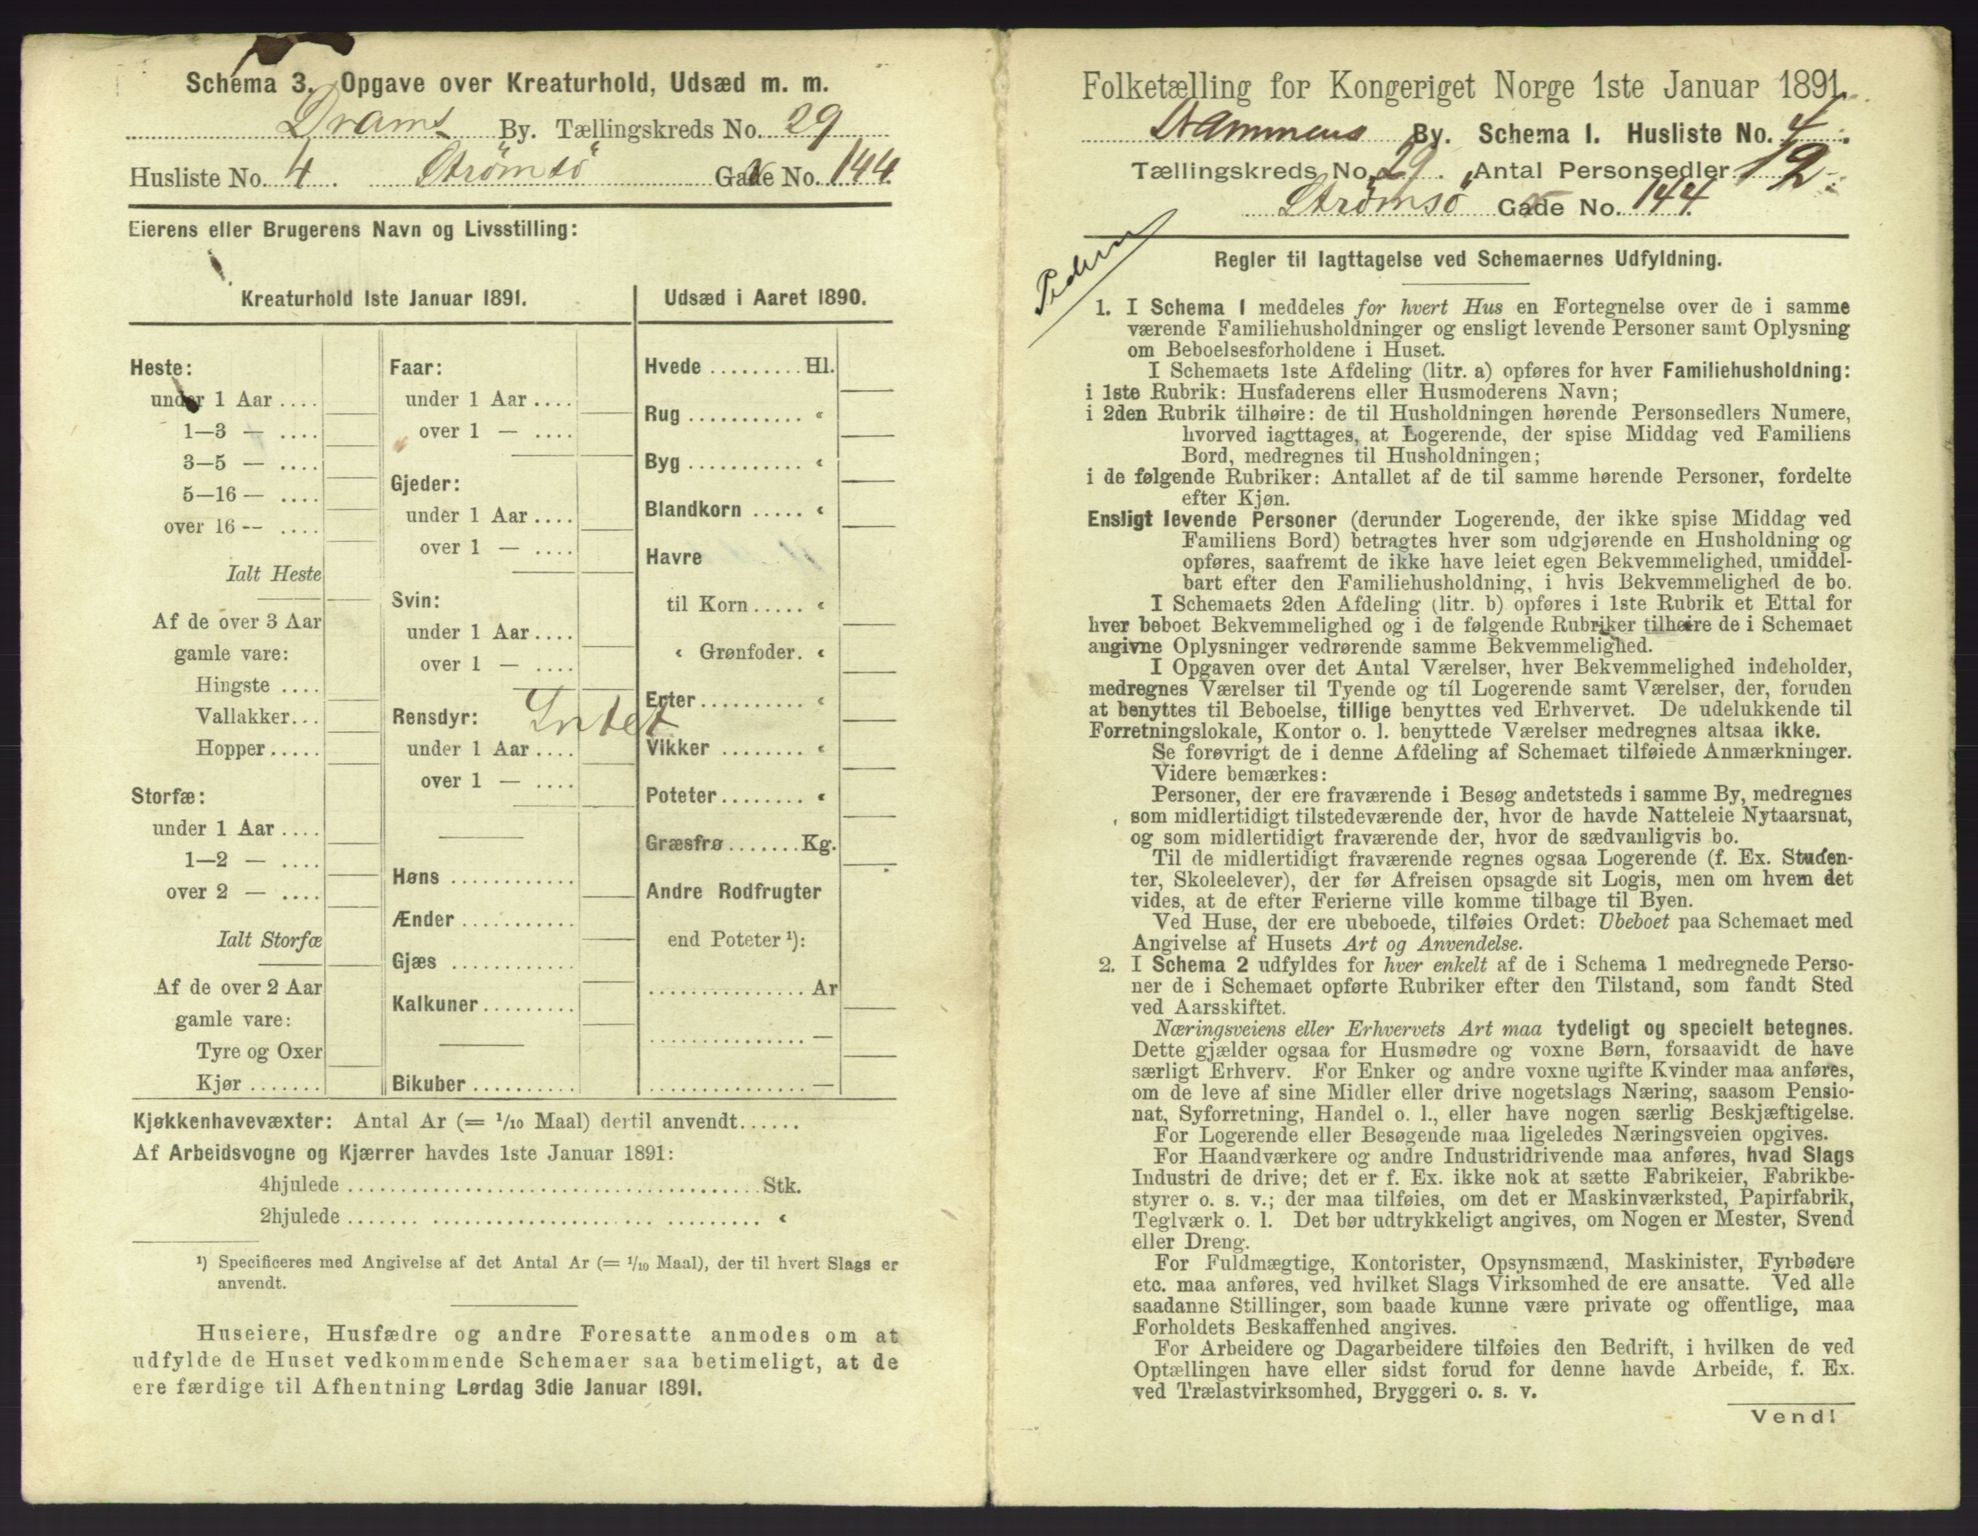 Schema 3. Opgave over Kreaturhold, Udsæd m. m.
Drams By. Tællingskreds No. 29
Husliste No. 4. Strömsö Gade No. 144.
Eierens eller Brugerens Navn og Livsstilling:
Kreaturhold 1ste Januar 1891.
Heste:
under 1 Aar ....
1—3 — ....
3—5 — ....
5—16 — ....
over 16 — ....
Ialt Heste
Af de over 3 Aar
gamle vare:
Hingste ....
Vallakker...
Hopper.....
Storfæ:
under 1 Aar ....
1—2 — ....
over 2 — ....
Ialt Storfæ
Af de over 2 Aar
gamle vare:
Tyre og Oxer
Kjør .......
Faar:
under 1 Aar ....
over 1 — ....
Gjeder:
under 1 Aar ....
over 1 — ....
Svin:
under 1 Aar ....
over 1 — ....
Rensdyr: Intet
under 1 Aar ....
over 1 — ....
Høns ............
Ænder ...........
Gjæs ............
Kalkuner.........
Bikuber ..........
Udsæd i Aaret 1890.
Hvede ......... Hl.
Rug ........... «
Byg ........... «
Blandkorn ..... «
Havre
til Korn ..... «
« Grønfoder. «
Erter.......... «
Vikker ........ «
Poteter........ «
Græsfrø....... Kg.
Andre Rodfrugter
end Poteter ¹):
............... Ar
............... —
............... —
Kjøkkenhavevæxter: Antal Ar (= 1/10 Maal) dertil anvendt......
Af Arbeidsvogne og Kjærrer havdes 1ste Januar 1891:
4hjulede ........................................ Stk.
2hjulede ....... ..................... ......... «
¹) Specificeres med Angivelse af det Antal Ar (= 1/10 Maal), der til hvert Slags er
anvendt.
Huseiere, Husfædre og andre Foresatte anmodes om at
udfylde de Huset vedkommende Schemaer saa betimeligt, at de
ere færdige til Afhentning Lørdag 3die Januar 1891.
Folketælling for Kongeriget Norge 1ste Januar 1891.
Drammens By. Schema 1. Husliste No. 4.
Tællingskreds No. 29. Antal Personsedler 12.
Strömsö Gade No. 144.
Regler til Iagttagelse ved Schemaernes Udfyldning.
1. I Schema 1 meddeles for hvert Hus en Fortegnelse over de i samme
værende Familiehusholdninger og ensligt levende Personer samt Oplysning
om Beboelsesforholdene i Huset.
I Schemaets 1ste Afdeling (litr. a) opføres for hver Familiehusholdning:
i 1ste Rubrik: Husfaderens eller Husmoderens Navn;
i 2den Rubrik tilhøire: de til Husholdningen hørende Personsedlers Numere,
hvorved iagttages, at Logerende, der spise Middag ved Familiens
Bord, medregnes til Husholdningen;
i de følgende Rubriker: Antallet af de til samme hørende Personer, fordelte
efter Kjøn.
Ensligt levende Personer (derunder Logerende, der ikke spise Middag ved
Familiens Bord) betragtes hver som udgjørende en Husholdning og
opføres, saafremt de ikke have leiet egen Bekvemmelighed, umiddel-
bart efter den Familiehusholdning, i hvis Bekvemmelighed de bo.
I Schemaets 2den Afdeling (litr. b) opføres i 1ste Rubrik et Ettal for
hver beboet Bekvemmelighed og i de følgende Rubriker tilhøire de i Schemaet
angivne Oplysninger vedrørende samme Bekvemmelighed.
I Opgaven over det Antal Værelser, hver Bekvemmelighed indeholder,
medregnes Værelser til Tyende og til Logerende samt Værelser, der, foruden
at benyttes til Beboelse, tillige benyttes ved Erhvervet. De udelukkende til
Forretningslokale, Kontor o. l. benyttede Værelser medregnes altsaa ikke.
Se forøvrigt de i denne Afdeling af Schemaet tilføiede Anmærkninger.
Videre bemærkes:
Personer, der ere fraværende i Besøg andetsteds i samme By, medregnes
som midlertidigt tilstedeværende der, hvor de havde Natteleie Nytaarsnat,
og som midlertidigt fraværende der, hvor de sædvanligvis bo.
Til de midlertidigt fraværende regnes ogsaa Logerende (f. Ex. Studen-
ter, Skoleelever), der før Afreisen opsagde sit Logis, men om hvem det
vides, at de efter Ferierne ville komme tilbage til Byen.
Ved Huse, der ere ubeboede, tilføies Ordet: Ubeboet paa Schemaet med
Angivelse af Husets Art og Anvendelse.
2. I Schema 2 udfyldes for hver enkelt af de i Schema 1 medregnede Perso-
ner de i Schemaet opførte Rubriker efter den Tilstand, som fandt Sted
ved Aarsskiftet.
Næringsveiens eller Erhvervets Art maa tydeligt og specielt betegnes.
Dette gjælder ogsaa for Husmødre og voxne Børn, forsaavidt de have
særligt Erhverv. For Enker og andre voxne ugifte Kvinder maa anføres,
om de leve af sine Midler eller drive nogetslags Næring, saasom Pensio-
nat, Syforretning, Handel o. l., eller have nogen særlig Beskjæftigelse.
For Logerende eller Besøgende maa ligeledes Næringsveien opgives.
For Haandværkere og andre Industridrivende maa anføres, hvad Slags
Industri de drive; det er f. Ex. ikke nok at sætte Fabrikeier, Fabrikbe-
styrer o. s. v.; der maa tilføies, om det er Maskinværksted, Papirfabrik,
Teglværk o. l. Det bør udtrykkeligt angives, om Nogen er Mester, Svend
eller Dreng.
For Fuldmægtige, Kontorister, Opsynsmænd, Maskinister, Fyrbødere
etc. maa anføres, ved hvilket Slags Virksomhed de ere ansatte. Ved alle
saadanne Stillinger, som baade kunne være private og offentlige, maa
Forholdets Beskaffenhed angives.
For Arbeidere og Dagarbeidere tilføies den Bedrift, i hvilken de ved
Optællingen have eller sidst forud for denne havde Arbeide, f. Ex.
ved Trælastvirksomhed, Bryggeri o. s. v.
Vend!